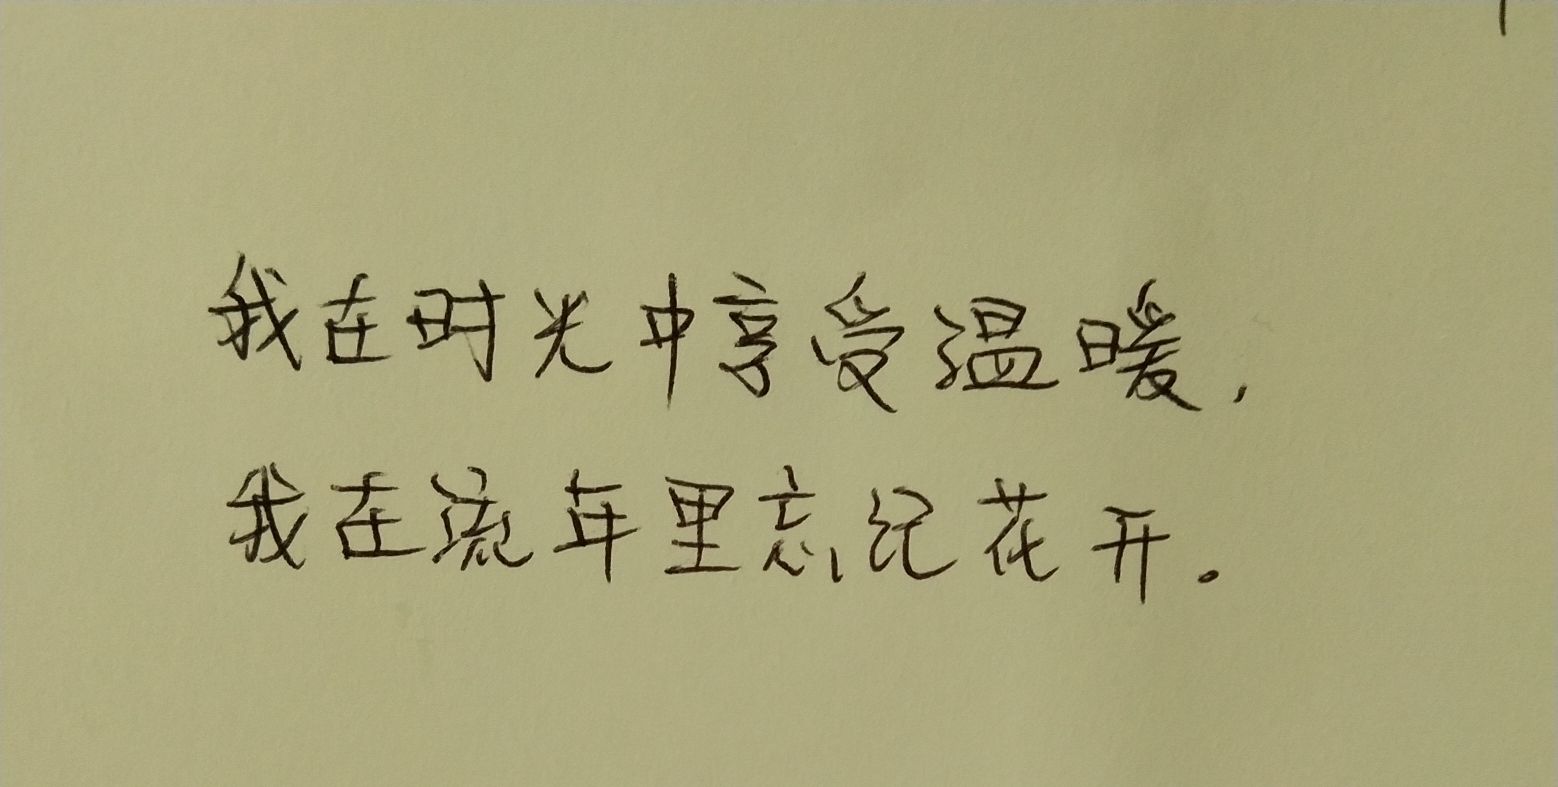 我在时光中享受温暖，
我在流年里忘记花开。